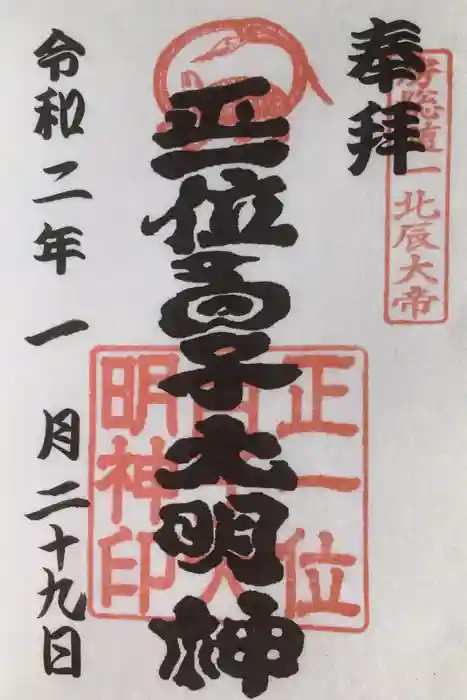 奉拝
房総一北辰大帝
正一位白子大明神
正一位
白子大
明神印
令和二年一月二十九日